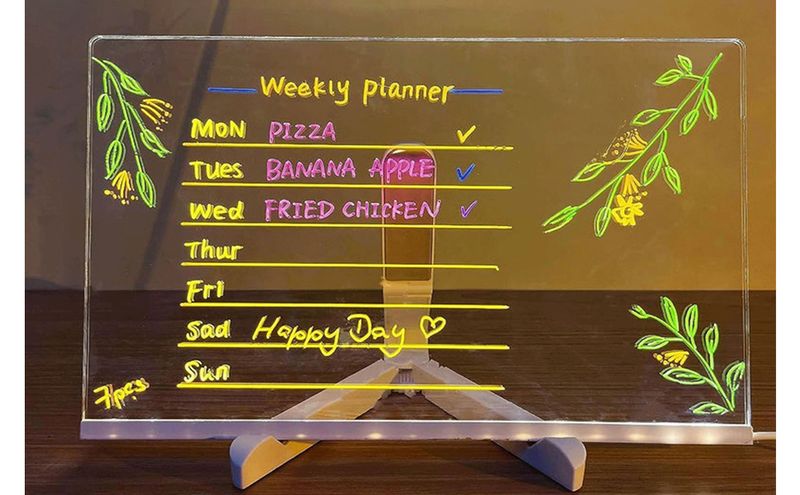 Weekly planner
MON PIZZA ✓
Tues BANANA APPLE ✓
Wed FRIED CHICKEN ✓
Thur
Fri
Sad Happy Day ♡
Sun
7pcs